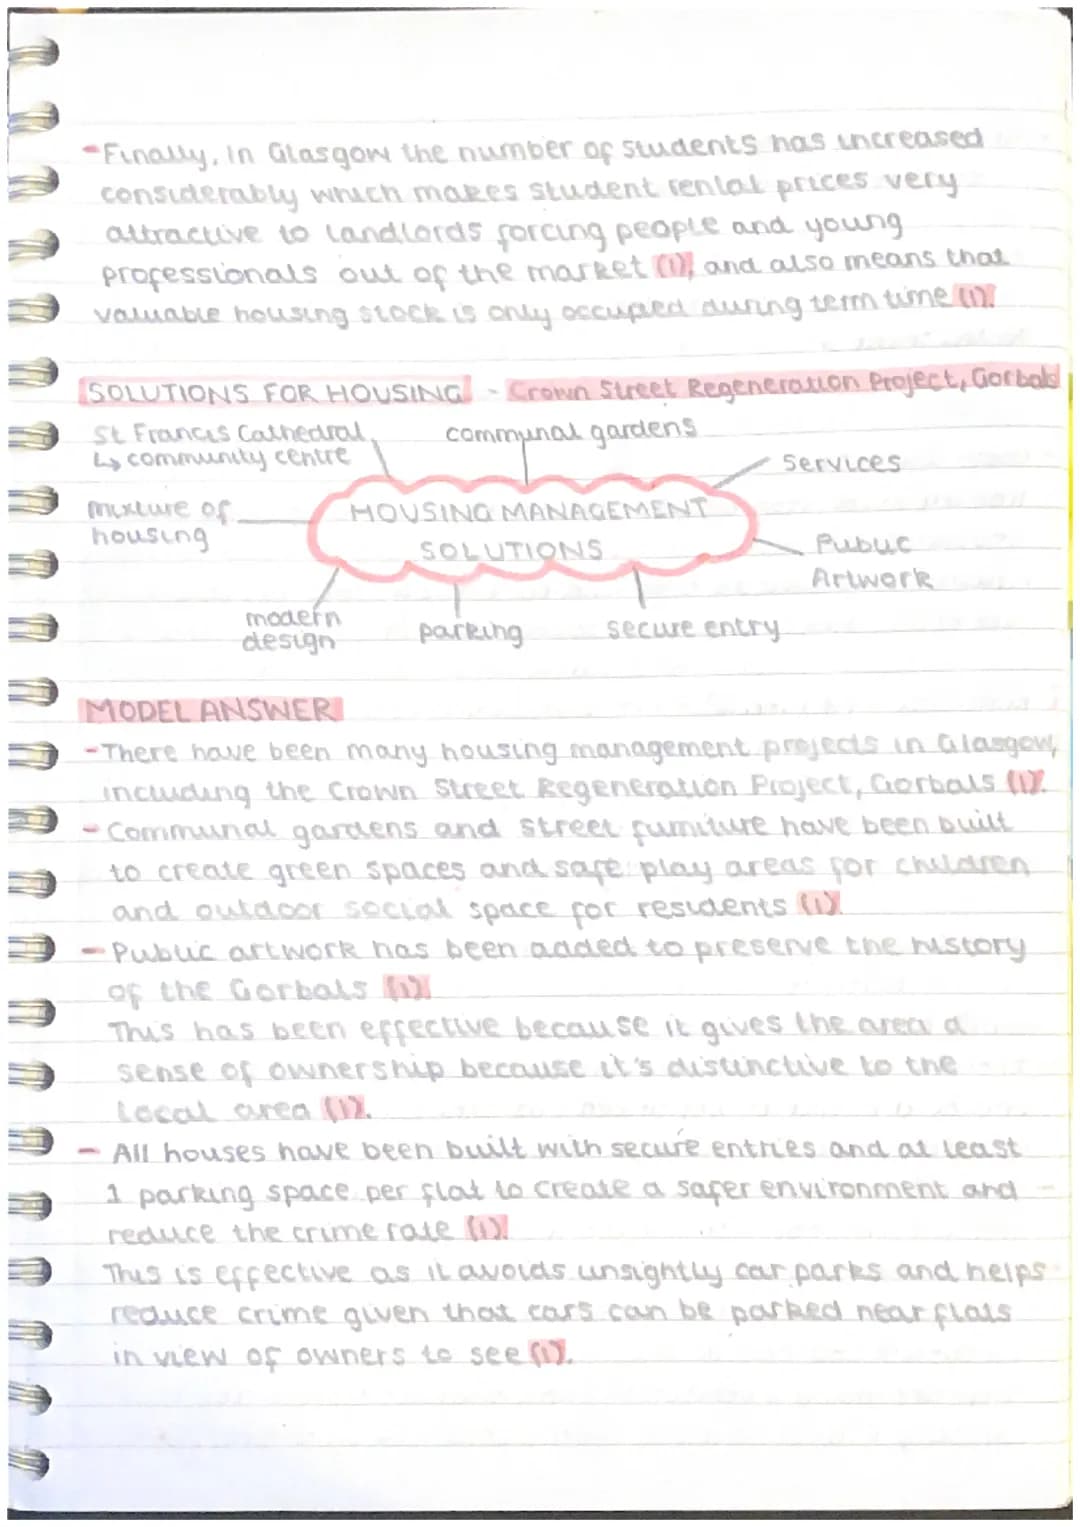 -Finally, in Glasgow the number of students has increased
considerably which makes student rental prices very
attractive to landlords forcing people and young
professionals out of the market (1), and also means that
valuable housing stock is only occupied during term time (1).
SOLUTIONS FOR HOUSING - Crown Street Regeneration Project, Gorbals
St Francis Cathedral
↳ community centre
communal gardens
Services
mixture of
housing
HOUSING MANAGEMENT
SOLUTIONS
Public
Artwork
modern
design
parking
secure entry
MODEL ANSWER
-There have been many housing management projects in Glasgow,
including the Crown Street Regeneration Project, Gorbals (1).
- Communal gardens and street furniture have been built
to create green spaces and safe play areas for children
and outdoor social space for residents (1).
- Public artwork has been added to preserve the history
of the Gorbals (1).
This has been effective because it gives the area a
sense of ownership because it's distinctive to the
local area (1).
- All houses have been built with secure entries and at least
1 parking space per flat to create a safer environment and
reduce the crime rate (1).
This is effective as it avoids unsightly car parks and helps
reduce crime given that cars can be parked near flats
in view of owners to see (1).